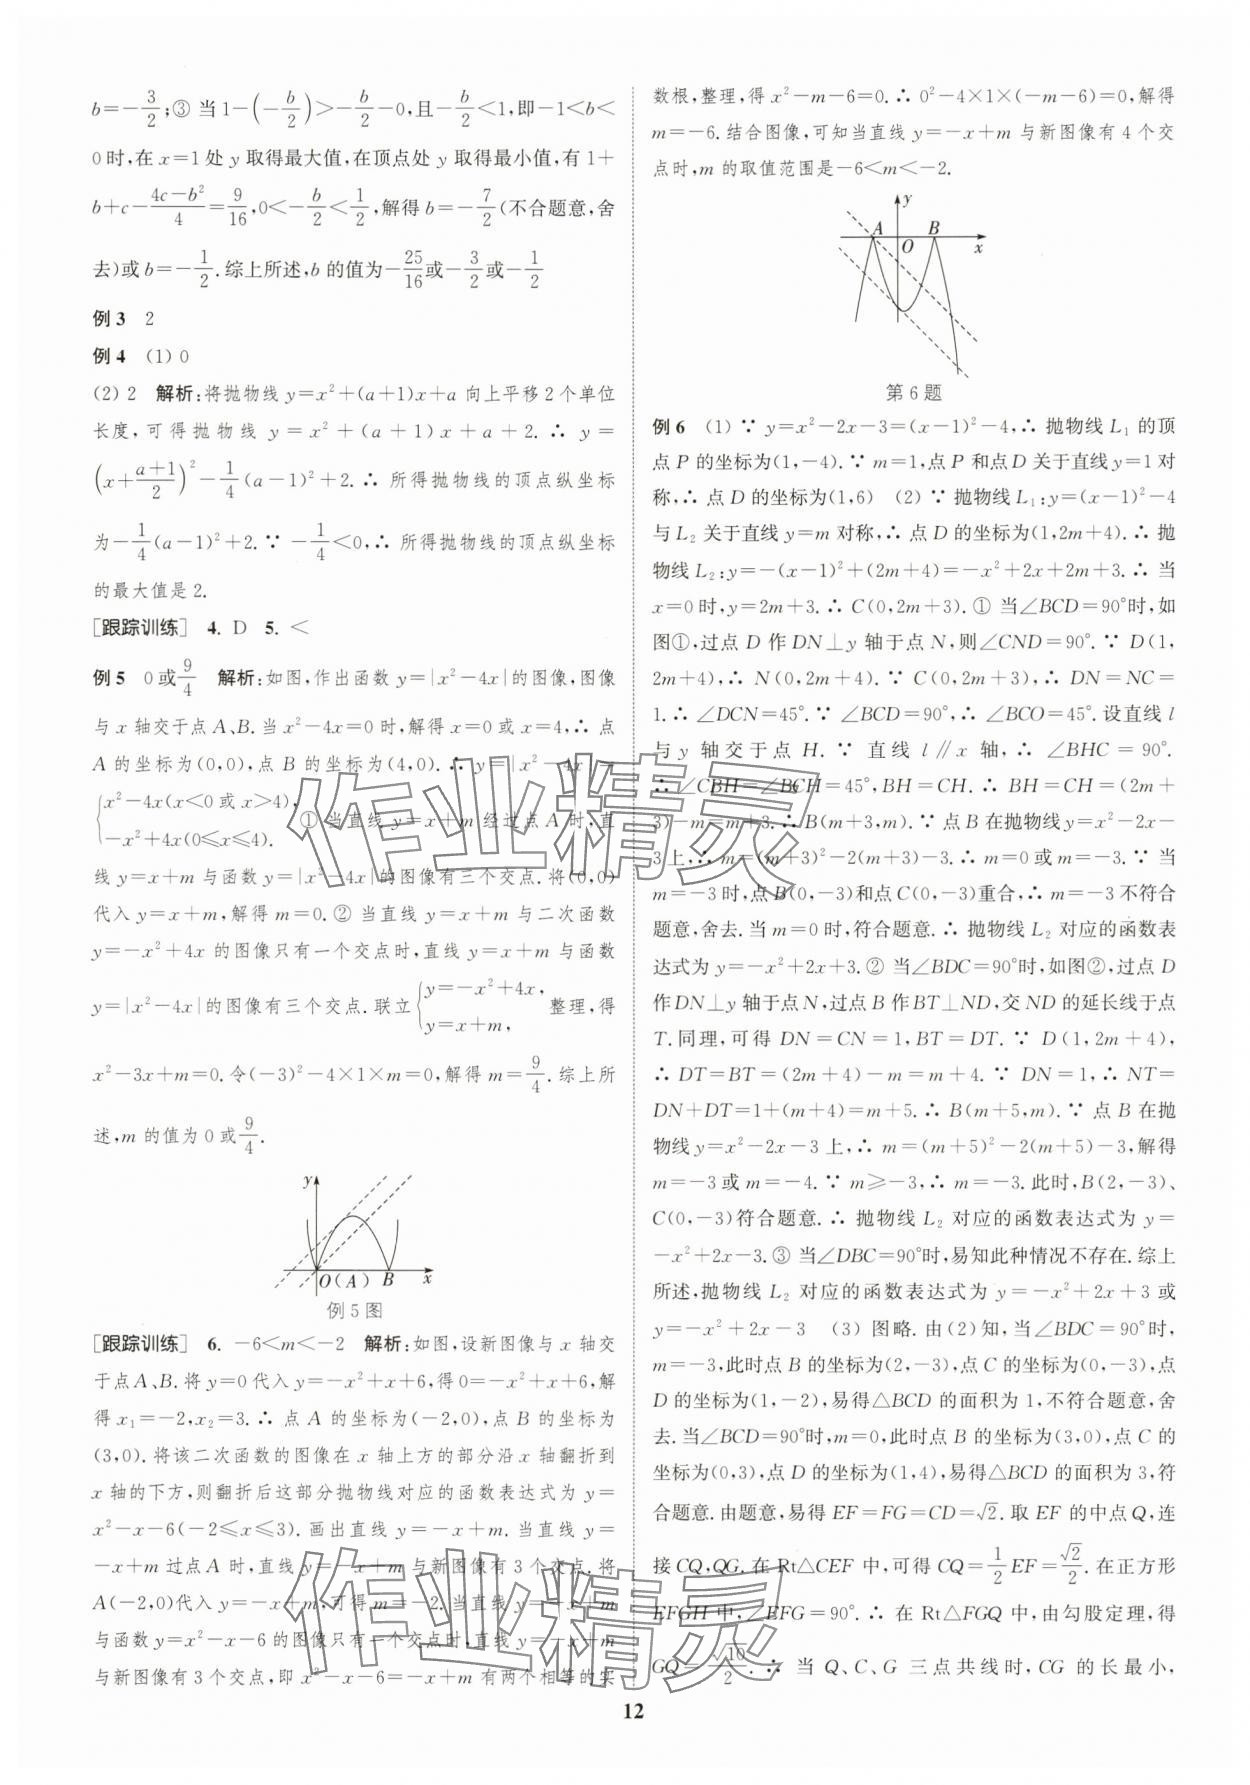 b=-3/2;③ 当1-(-b/2)>-b/2-0,且-b/2<1,即-1<b<
0时,在x=1处y取得最大值,在顶点处y取得最小值,有1+
b+c-(4c-b²)/4=9/16,0<-b/2<1/2,解得b=-7/2(不合题意,舍
去)或b=-1/2.综上所述,b的值为-25/16或-3/2或-1/2
例3 2
例4 (1) 0
(2) 2 解析:将抛物线y=x²+(a+1)x+a向上平移2个单位
长度,可得抛物线y=x²+(a+1)x+a+2.∴ y=
(x+(a+1)/2)²-1/4(a-1)²+2.∴ 所得抛物线的顶点纵坐标
为-1/4(a-1)²+2.∵ -1/4<0,∴ 所得抛物线的顶点纵坐标
的最大值是2.
[跟踪训练] 4. D 5. <
例5 0或9/4 解析:如图,作出函数y=|x²-4x|的图像,图像
与x轴交于点A、B.当x²-4x=0时,解得x=0或x=4,∴ 点
A的坐标为(0,0),点B的坐标为(4,0).∴ y=|x²-4x|=
{x²-4x(x<0或x>4),
-x²+4x(0≤x≤4). ① 当直线y=x+m经过点A时,直
线y=x+m与函数y=|x²-4x|的图像有三个交点.将(0,0)
代入y=x+m,解得m=0.② 当直线y=x+m与二次函数
y=-x²+4x的图像只有一个交点时,直线y=x+m与函数
y=|x²-4x|的图像有三个交点.联立{y=-x²+4x, y=x+m, 整理,得
x²-3x+m=0.令(-3)²-4×1×m=0,解得m=9/4.综上所
述,m的值为0或9/4.
y
O(A) B x
例5图
[跟踪训练] 6. -6<m<-2 解析:如图,设新图像与x轴交
于点A、B.将y=0代入y=-x²+x+6,得0=-x²+x+6,解
得x₁=-2,x₂=3.∴ 点A的坐标为(-2,0),点B的坐标为
(3,0).将该二次函数的图像在x轴上方的部分沿x轴翻折到
x轴的下方,则翻折后这部分抛物线对应的函数表达式为y=
x²-x-6(-2≤x≤3).画出直线y=-x+m.当直线y=
-x+m过点A时,直线y=-x+m与新图像有3个交点.将
A(-2,0)代入y=-x+m,可得m=-2.当直线y=-x+m
与函数y=x²-x-6的图像只有一个交点时,直线y=-x+m
与新图像有3个交点,即x²-x-6=-x+m有两个相等的实
数根,整理,得x²-m-6=0.∴ 0²-4×1×(-m-6)=0,解得
m=-6.结合图像,可知当直线y=-x+m与新图像有4个交
点时,m的取值范围是-6<m<-2.
y
A B
O x
第6题
例6 (1) ∵ y=x²-2x-3=(x-1)²-4,∴ 抛物线L₁的顶
点P的坐标为(1,-4).∵ m=1,点P和点D关于直线y=1对
称,∴ 点D的坐标为(1,6) (2) ∵ 抛物线L₁:y=(x-1)²-4
与L₂关于直线y=m对称,∴ 点D的坐标为(1,2m+4).∴ 抛
物线L₂:y=-(x-1)²+(2m+4)=-x²+2x+2m+3.∴ 当
x=0时,y=2m+3.∴ C(0,2m+3).① 当∠BCD=90°时,如
图①,过点D作DN⊥y轴于点N,则∠CND=90°.∵ D(1,
2m+4),∴ N(0,2m+4).∵ C(0,2m+3),∴ DN=NC=
1.∴ ∠DCN=45°.∵ ∠BCD=90°,∴ ∠BCO=45°.设直线l
与y轴交于点H.∵ 直线l∥x轴,∴ ∠BHC=90°.
∴ ∠CBH=∠BCH=45°,BH=CH.∴ BH=CH=(2m+
3)-m=m+3.∴ B(m+3,m).∵ 点B在抛物线y=x²-2x-
3上,∴ m=(m+3)²-2(m+3)-3.∴ m=0或m=-3.∵ 当
m=-3时,点B(0,-3)和点C(0,-3)重合,∴ m=-3不符合
题意,舍去.当m=0时,符合题意.∴ 抛物线L₂对应的函数表
达式为y=-x²+2x+3.② 当∠BDC=90°时,如图②,过点D
作DN⊥y轴于点N,过点B作BT⊥ND,交ND的延长线于点
T.同理,可得DN=CN=1,BT=DT.∵ D(1,2m+4),
∴ DT=BT=(2m+4)-m=m+4.∵ DN=1,∴ NT=
DN+DT=1+(m+4)=m+5.∴ B(m+5,m).∵ 点B在抛
物线y=x²-2x-3上,∴ m=(m+5)²-2(m+5)-3,解得
m=-3或m=-4.∵ m≥-3,∴ m=-3.此时,B(2,-3)、
C(0,-3)符合题意.∴ 抛物线L₂对应的函数表达式为y=
-x²+2x-3.③ 当∠DBC=90°时,易知此种情况不存在.综上
所述,抛物线L₂对应的函数表达式为y=-x²+2x+3或
y=-x²+2x-3 (3) 图略.由(2)知,当∠BDC=90°时,
m=-3,此时点B的坐标为(2,-3),点C的坐标为(0,-3),点
D的坐标为(1,-2),易得△BCD的面积为1,不符合题意,舍
去.当∠BCD=90°时,m=0,此时点B的坐标为(3,0),点C的
坐标为(0,3),点D的坐标为(1,4),易得△BCD的面积为3,符
合题意.由题意,易得EF=FG=CD=√2.取EF的中点Q,连
接CQ,QG.在Rt△CEF中,可得CQ=1/2EF=√2/2.在正方形
EFGH中,∠EFG=90°.∴ 在Rt△FGQ中,由勾股定理,得
GQ=√10/2.∴ 当Q、C、G三点共线时,CG的长最小,
12
作业精灵
作业精灵